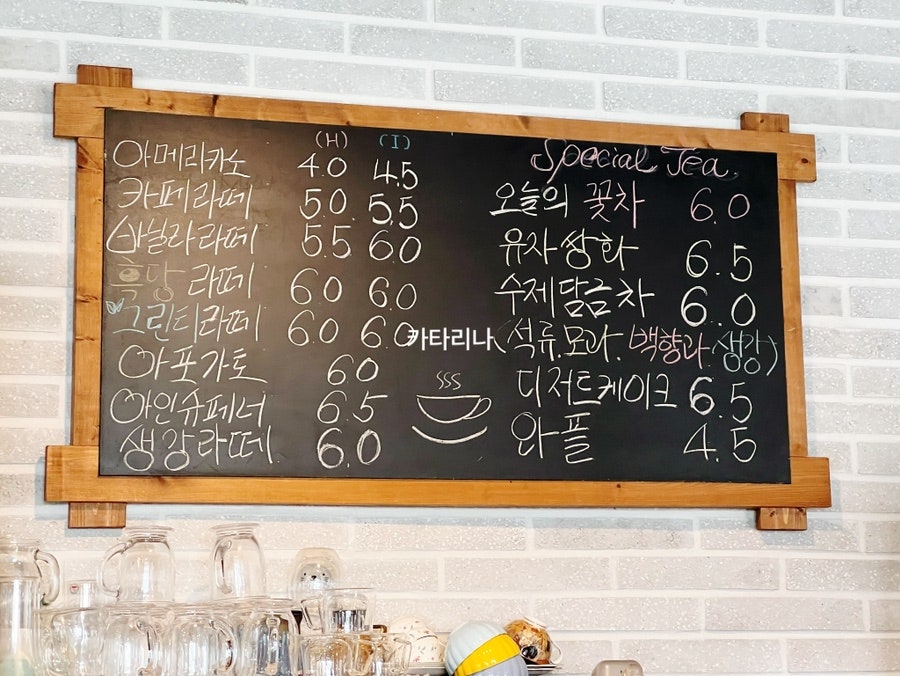 (H) (I)
아메리카노 4.0 4.5
카페라떼 5.0 5.5
바닐라라떼 5.5 6.0
흑당라떼 6.0 6.0
그린티라떼 6.0 6.0
아포가토 6.0
아인슈페너 6.5
생강라떼 6.0
카타리나
Special Tea
오늘의 꽃차 6.0
유자쌍화 6.5
수제담금차 6.0
(석류.모과.백향과.생강)
디저트케이크 6.5
와플 4.5